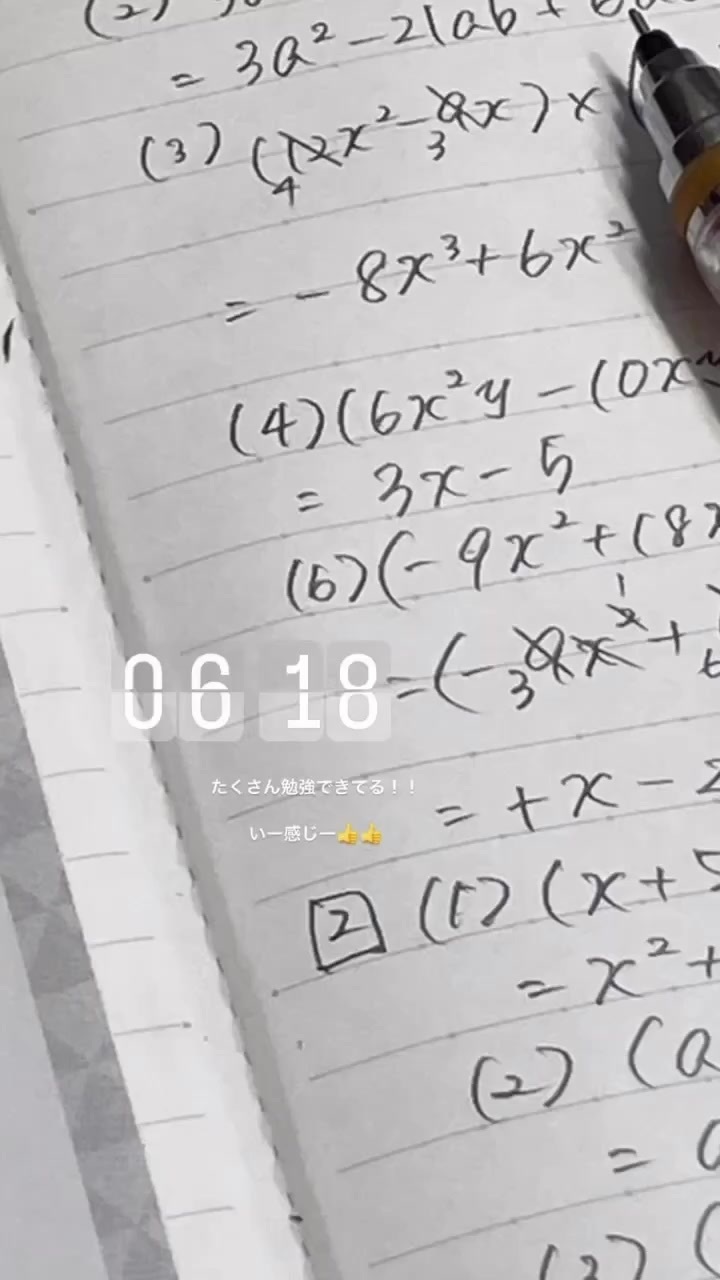 (2)
= 3a² - 21ab +
(3) (12x² - 9x) ×
4 3
= - 8x³ + 6x²
(4) (6x²y - 10x
= 3x - 5
(6) (- 9x² + 18x
1
= (- 9x² +
3
06 18
たくさん勉強できてる！！
= + x - 2
いー感じー👍👍
2 (1) (x + 5
= x² +
(2) (a
= a
(3) (